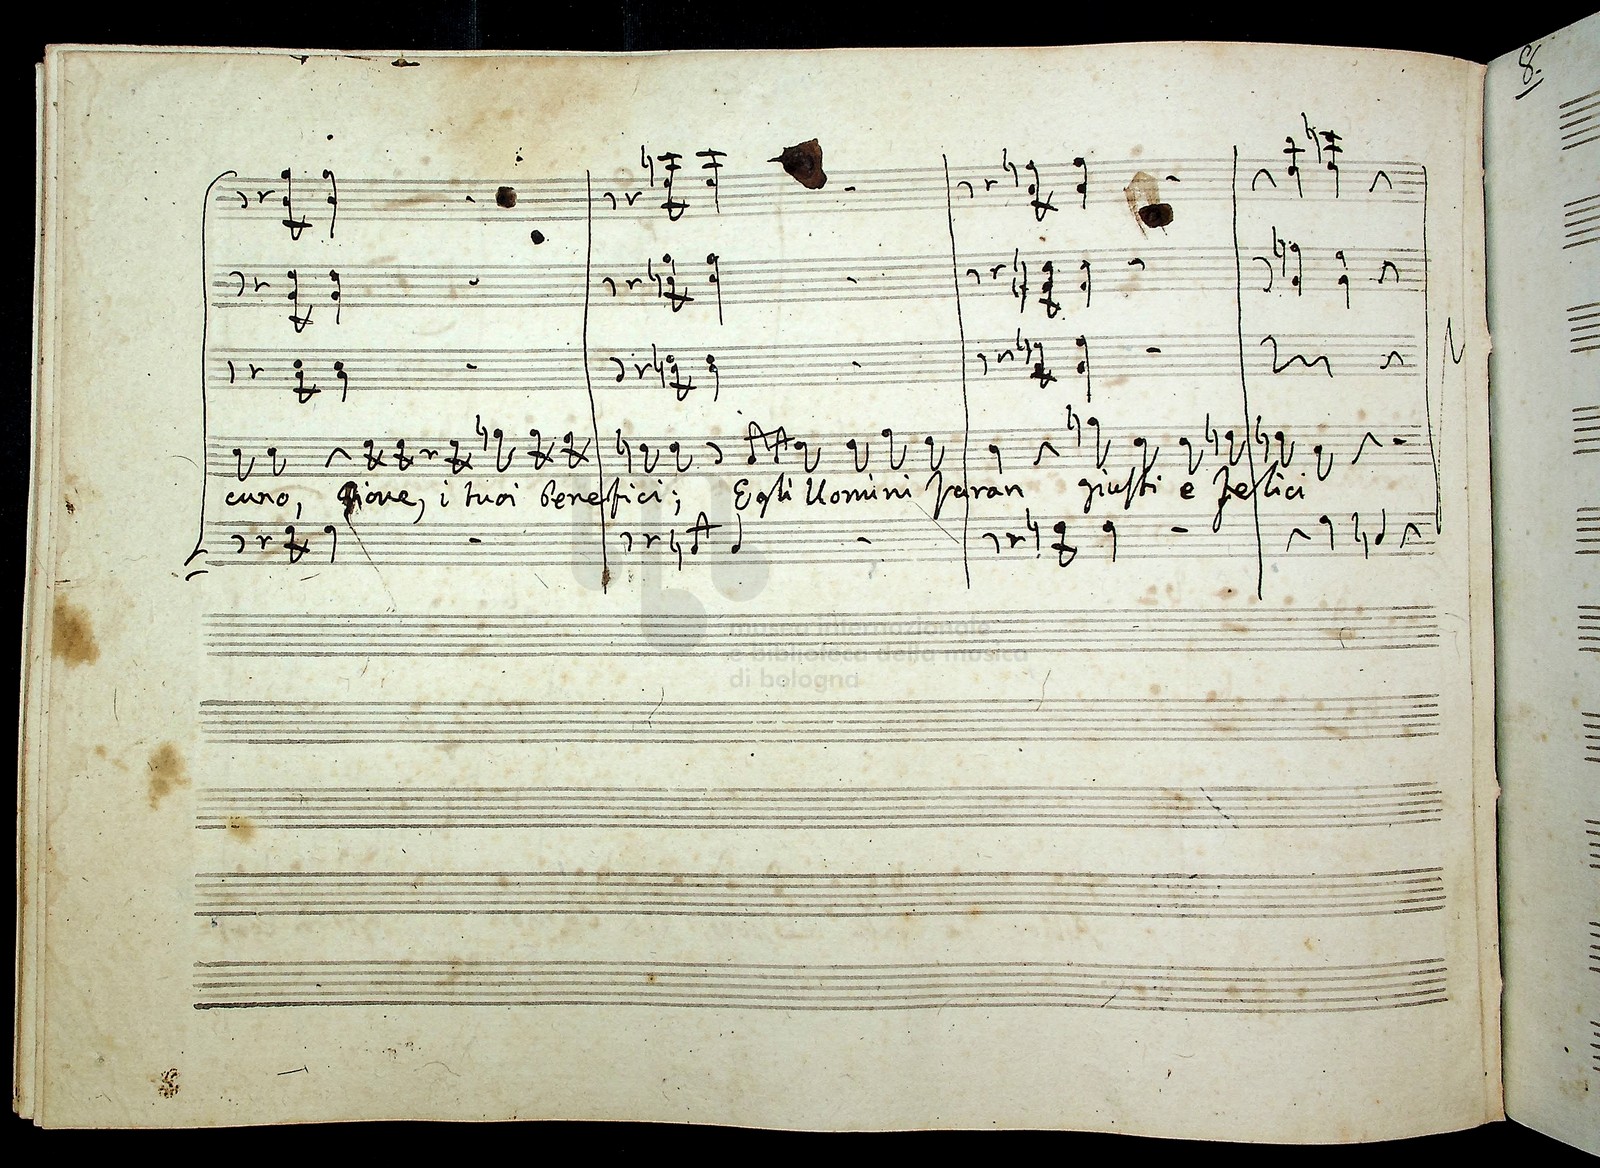 8.
curo, Giove, i tuoi benefici; Egli Uomini saran giusti e felici
museo internazionale
e biblioteca della musica
di bologna